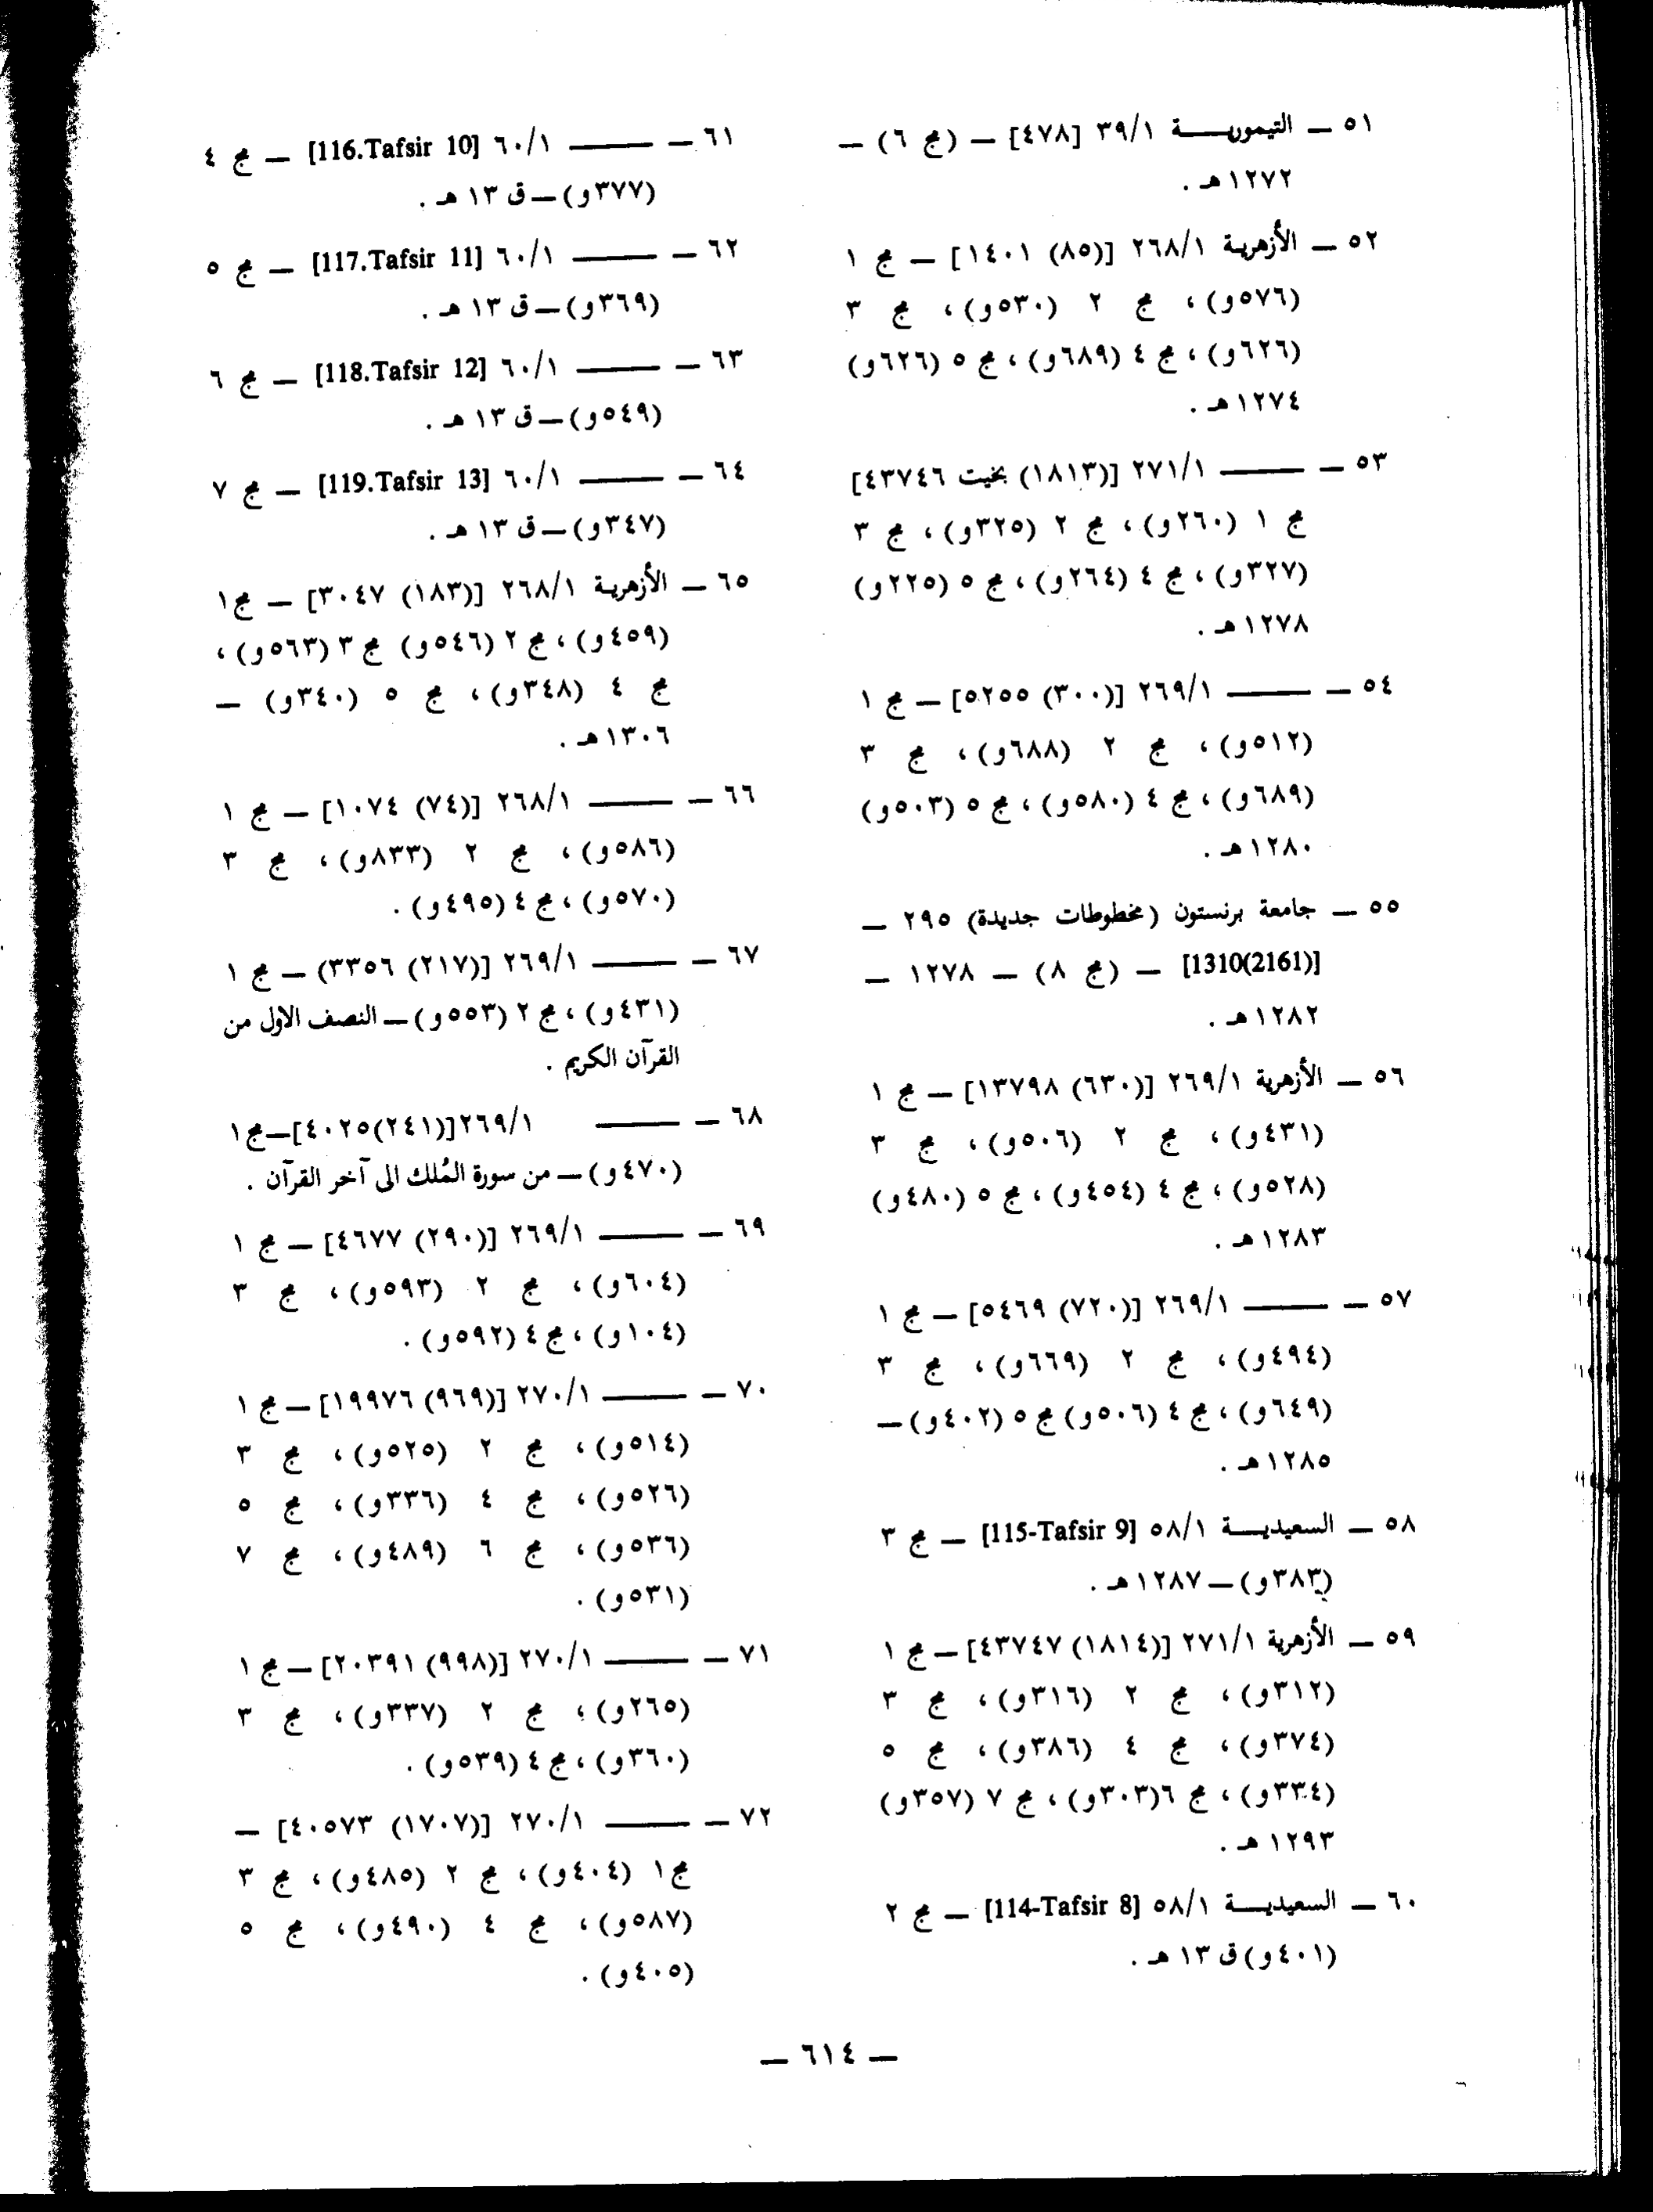 ٥١ ــ التيموريـــة ٣٩/١ [٤٧٨] ــ (مج ٦) ــ
١٢٧٢هـ .
٥٢ ــ الأزهرية ٢٦٨/١ [(٨٥) ١٤٠١] ــ مج ١
(٥٧٦و) ، مج ٢ (٥٣٠و) ، مج ٣
(٦٢٦و) ، مج ٤ (٦٨٩و) ، مج ٥ (٦٢٦و)
١٢٧٤هـ .
٥٣ ــ ــــــــ ٢٧١/١ [(١٨١٣) بخيت ٤٣٧٤٦]
مج ١ (٢٦٠و) ، مج ٢ (٣٢٥و) ، مج ٣
(٣٢٧و) ، مج ٤ (٢٦٤و) ، مج ٥ (٢٢٥و)
١٢٧٨هـ .
٥٤ ــ ــــــــ ٢٦٩/١ [(٣٠٠) ٥٢٥٥] ــ مج ١
(٥١٢و) ، مج ٢ (٦٨٨و) ، مج ٣
(٦٨٩و) ، مج ٤ (٥٨٠و) ، مج ٥ (٥٠٣و)
١٢٨٠هـ .
٥٥ ــ جامعة برنستون (مخطوطات جديدة) ٢٩٥ ــ
[1310(2161)] ــ (مج ٨) ــ ١٢٧٨ ــ
١٢٨٢هـ .
٥٦ ــ الأزهرية ٢٦٩/١ [(٦٣٠) ١٣٧٩٨] ــ مج ١
(٤٣١و) ، مج ٢ (٥٠٦و) ، مج ٣
(٥٢٨و) ، مج ٤ (٤٥٤و) ، مج ٥ (٤٨٠و)
١٢٨٣هـ .
٥٧ ــ ــــــــ ٢٦٩/١ [(٧٢٠) ٥٤٦٩] ــ مج ١
(٤٩٤و) ، مج ٢ (٦٦٩و) ، مج ٣
(٦٤٩و) ، مج ٤ (٥٠٦و) مج ٥ (٤٠٢و) ــ
١٢٨٥هـ .
٥٨ ــ السعيديـــة ٥٨/١ [115-Tafsir 9] ــ مج ٣
(٣٨٣و) ــ ١٢٨٧هـ .
٥٩ ــ الأزهرية ٢٧١/١ [(١٨١٤) ٤٣٧٤٧] ــ مج ١
(٣١٢و) ، مج ٢ (٣١٦و) ، مج ٣
(٣٧٤و) ، مج ٤ (٣٨٦و) ، مج ٥
(٣٣٤و) ، مج ٦ (٣٠٣و) ، مج ٧ (٣٥٧و)
١٢٩٣هـ .
٦٠ ــ السعيديـــة ٥٨/١ [114-Tafsir 8] ــ مج ٢
(٤٠١و) ق ١٣ هـ .
٦١ ــ ــــــــ ٦٠/١ [116.Tafsir 10] ــ مج ٤
(٣٧٧و) ــ ق ١٣ هـ .
٦٢ ــ ــــــــ ٦٠/١ [117.Tafsir 11] ــ مج ٥
(٣٦٩و) ــ ق ١٣ هـ .
٦٣ ــ ــــــــ ٦٠/١ [118.Tafsir 12] ــ مج ٦
(٥٤٩و) ــ ق ١٣ هـ .
٦٤ ــ ــــــــ ٦٠/١ [119.Tafsir 13] ــ مج ٧
(٣٤٧و) ــ ق ١٣ هـ .
٦٥ ــ الأزهرية ٢٦٨/١ [(١٨٣) ٣٠٤٧] ــ مج١
(٤٥٩و) ، مج ٢ (٥٤٦و) مج ٣ (٥٦٣و) ،
مج ٤ (٣٤٨و) ، مج ٥ (٣٤٠و) ــ
١٣٠٦هـ .
٦٦ ــ ــــــــ ٢٦٨/١ [(٧٤) ١٠٧٤] ــ مج ١
(٥٨٦و) ، مج ٢ (٨٣٣و) ، مج ٣
(٥٧٠و) ، مج ٤ (٤٩٥و) .
٦٧ ــ ــــــــ ٢٦٩/١ [(٢١٧) ٣٣٥٦) ــ مج ١
(٤٣١و) ، مج ٢ (٥٥٣و) ــ النصف الاول من
القرآن الكريم .
٦٨ ــ ــــــــ ٢٦٩/١[(٢٤١)٤٠٢٥]ــمج١
(٤٧٠و) ــ من سورة المُلك الى آخر القرآن .
٦٩ ــ ــــــــ ٢٦٩/١ [(٢٩٠) ٤٦٧٧] ــ مج ١
(٦٠٤و) ، مج ٢ (٥٩٣و) ، مج ٣
(١٠٤و) ، مج ٤ (٥٩٢و) .
٧٠ ــ ــــــــ ٢٧٠/١ [(٩٦٩) ١٩٩٧٦] ــ مج ١
(٥١٤و) ، مج ٢ (٥٢٥و) ، مج ٣
(٥٢٦و) ، مج ٤ (٣٣٦و) ، مج ٥
(٥٣٦و) ، مج ٦ (٤٨٩و) ، مج ٧
(٥٣١و) .
٧١ ــ ــــــــ ٢٧٠/١ [(٩٩٨) ٢٠٣٩١] ــ مج ١
(٢٦٥و) ، مج ٢ (٣٣٧و) ، مج ٣
(٣٦٠و) ، مج ٤ (٥٣٩و) .
٧٢ ــ ــــــــ ٢٧٠/١ [(١٧٠٧) ٤٠٥٧٣] ــ
مج١ (٤٠٤و) ، مج ٢ (٤٨٥و) ، مج ٣
(٥٨٧و) ، مج ٤ (٤٩٠و) ، مج ٥
(٤٠٥و) .
ــ ٦١٤ ــ